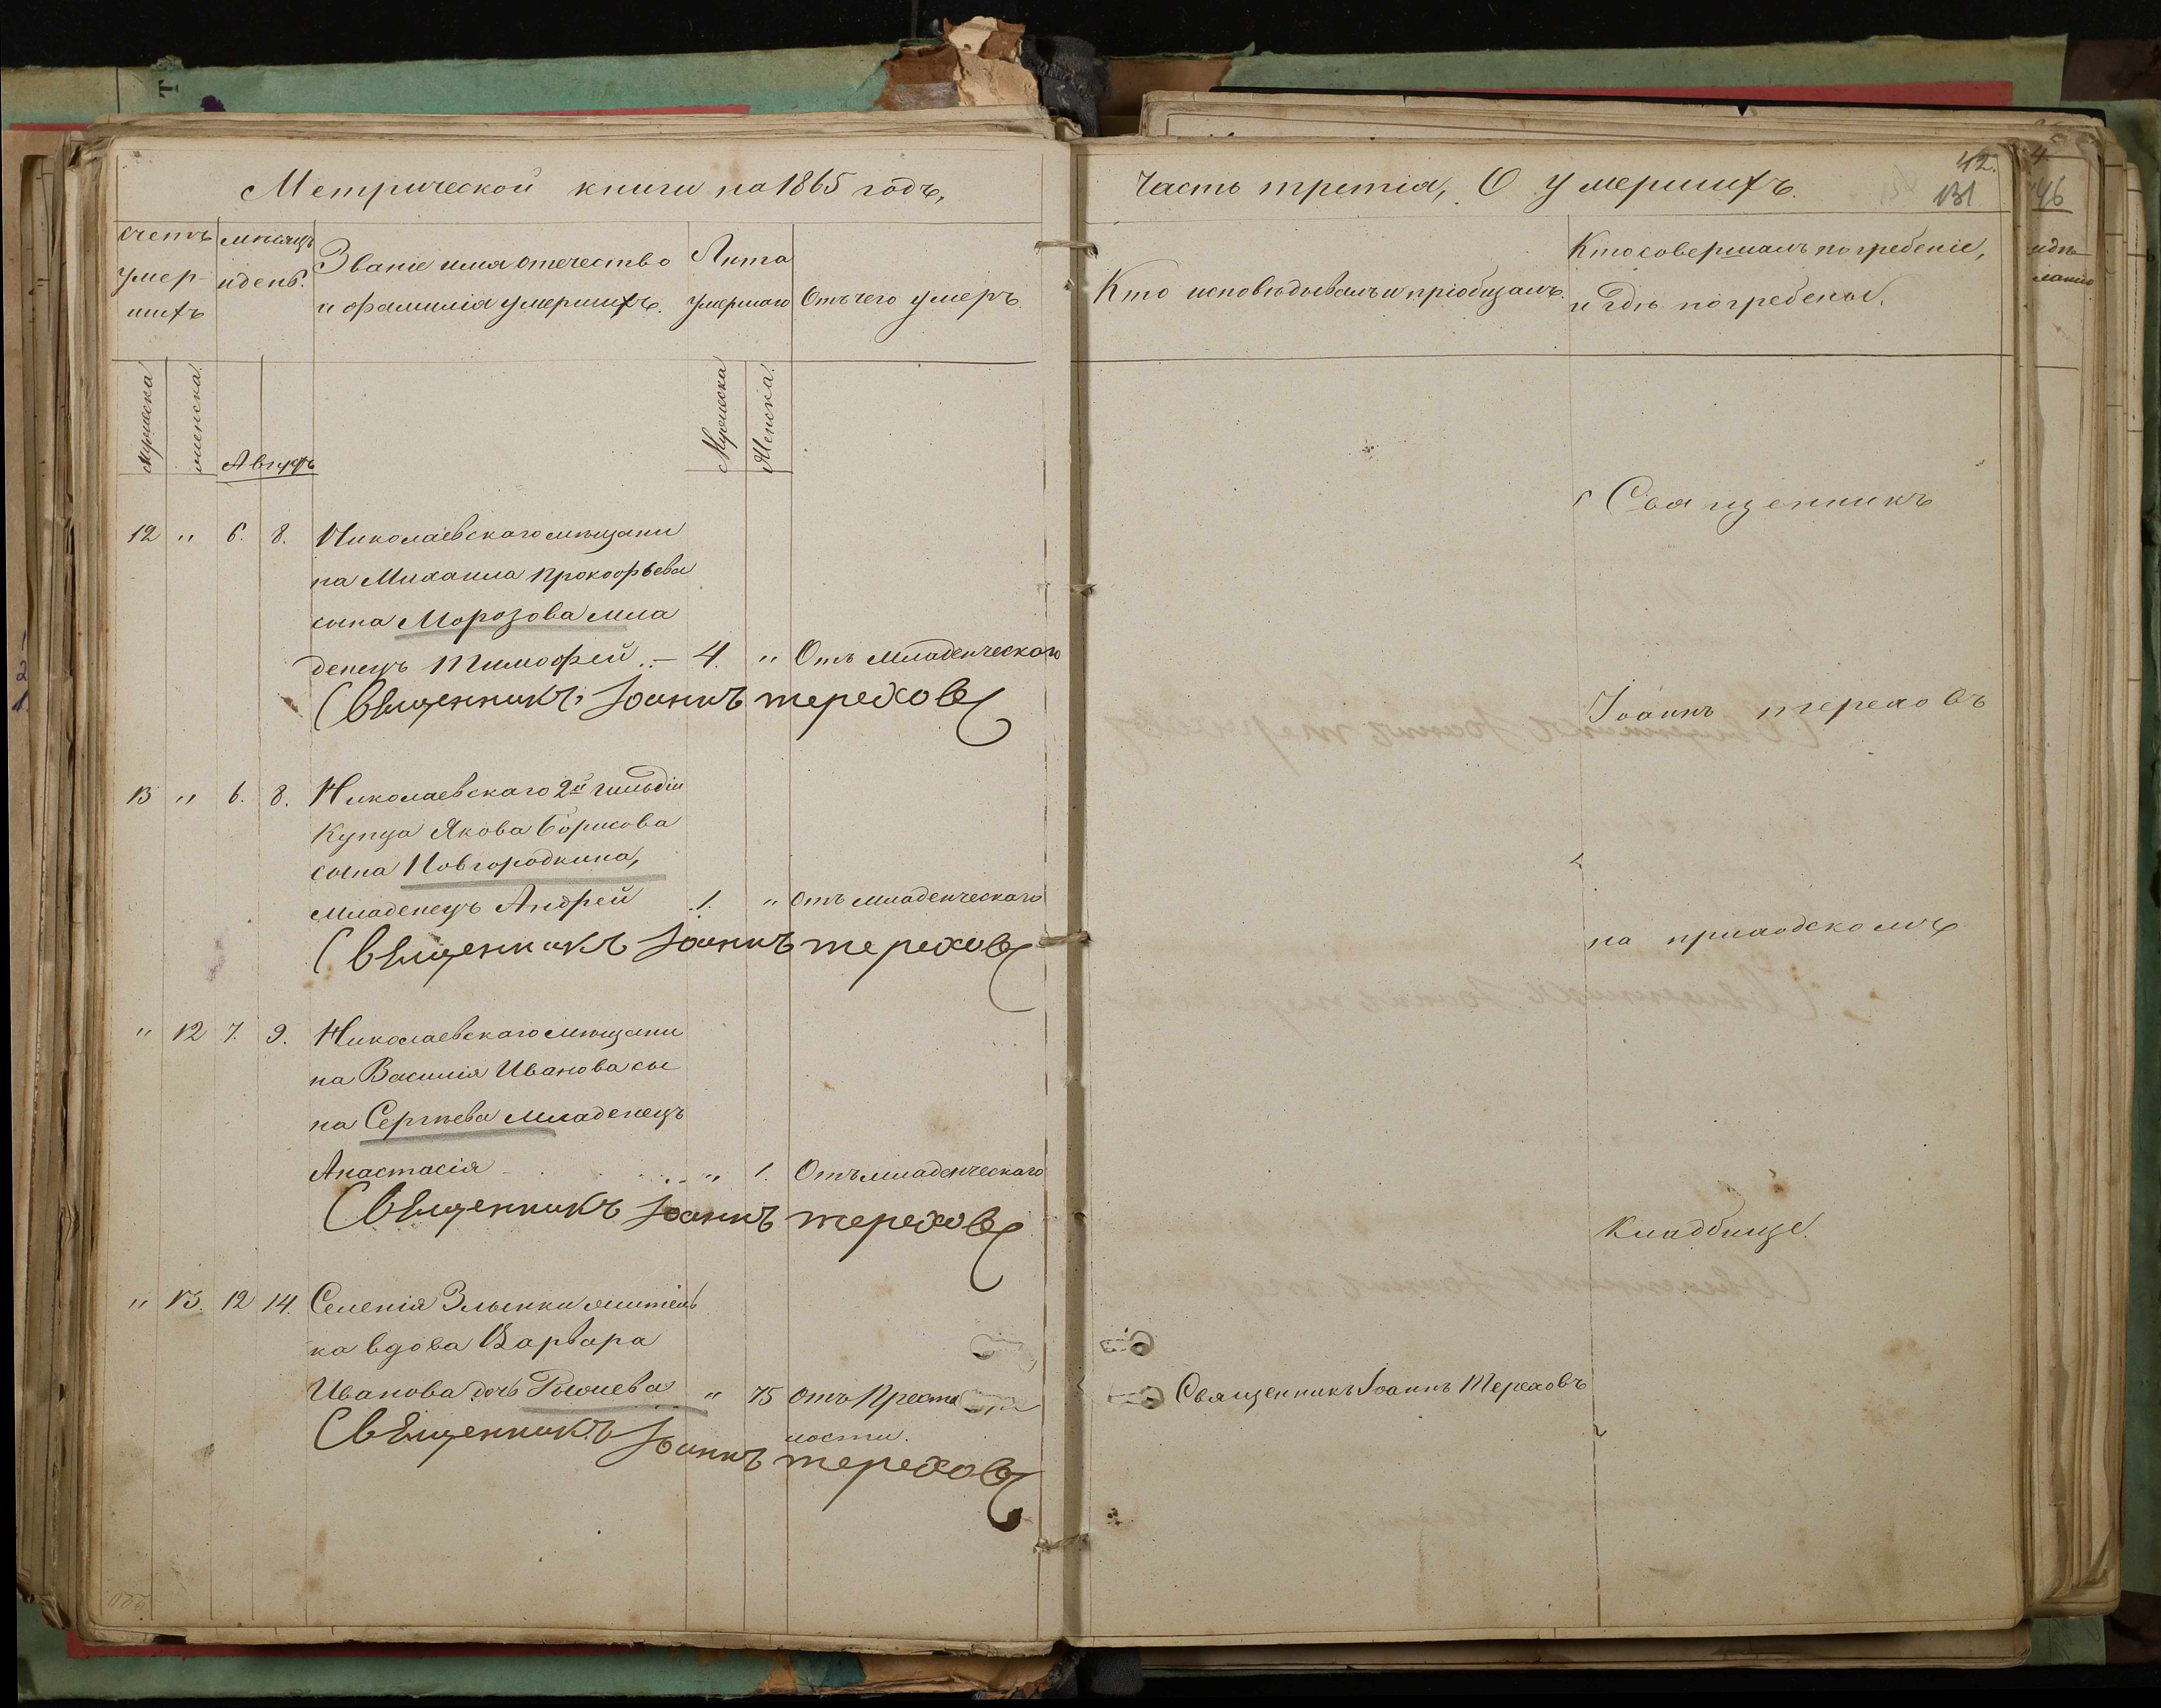 Метрической книги на 1865 годъ,
счетъ умер-шихъ
мѣсяцъ и день.
Званіе имя отечество и фамилія умершихъ.
Лѣта умершаго
Отъ чего умеръ
мужеска
женска.
Августъ
Мужеска
Женска.
12 " 6. 8. Николаевскаго мѣщани
на Михаила Прокофьева
сына Морозова мла
денецъ Тимофей .– 4. " Отъ Младенческаго
Священникъ Іоаннъ Тереховъ
13 " 6. 8. Николаевскаго 2й гильдіи
Купца Якова Борисова
сына Новгородкина,
младенецъ Андрей 1. " Отъ младенческаго
Священникъ Іоаннъ Тереховъ
" 12 7. 9. Николаевскаго мѣщани
на Василія Иванова сы
на Сергѣева Младенецъ
Анастасія " 1. Отъ младенческаго
Священникъ Іоаннъ Тереховъ
" 13. 12 14. Селенія Злынки житель
ка вдова Варвара
Иванова дочь " 75 Отъ
лости.
Священникъ Іоаннъ Тереховъ
Часть третія, О умершихъ.
42.
131
Кто исповѣдывалъ и пріобщалъ.
Кто совершалъ погребеніе,
и гдѣ погребены.
Священникъ
Іоаннъ Тереховъ
на приходскомъ
Кладбище.
Священникъ Іоаннъ Тереховъ
4
46